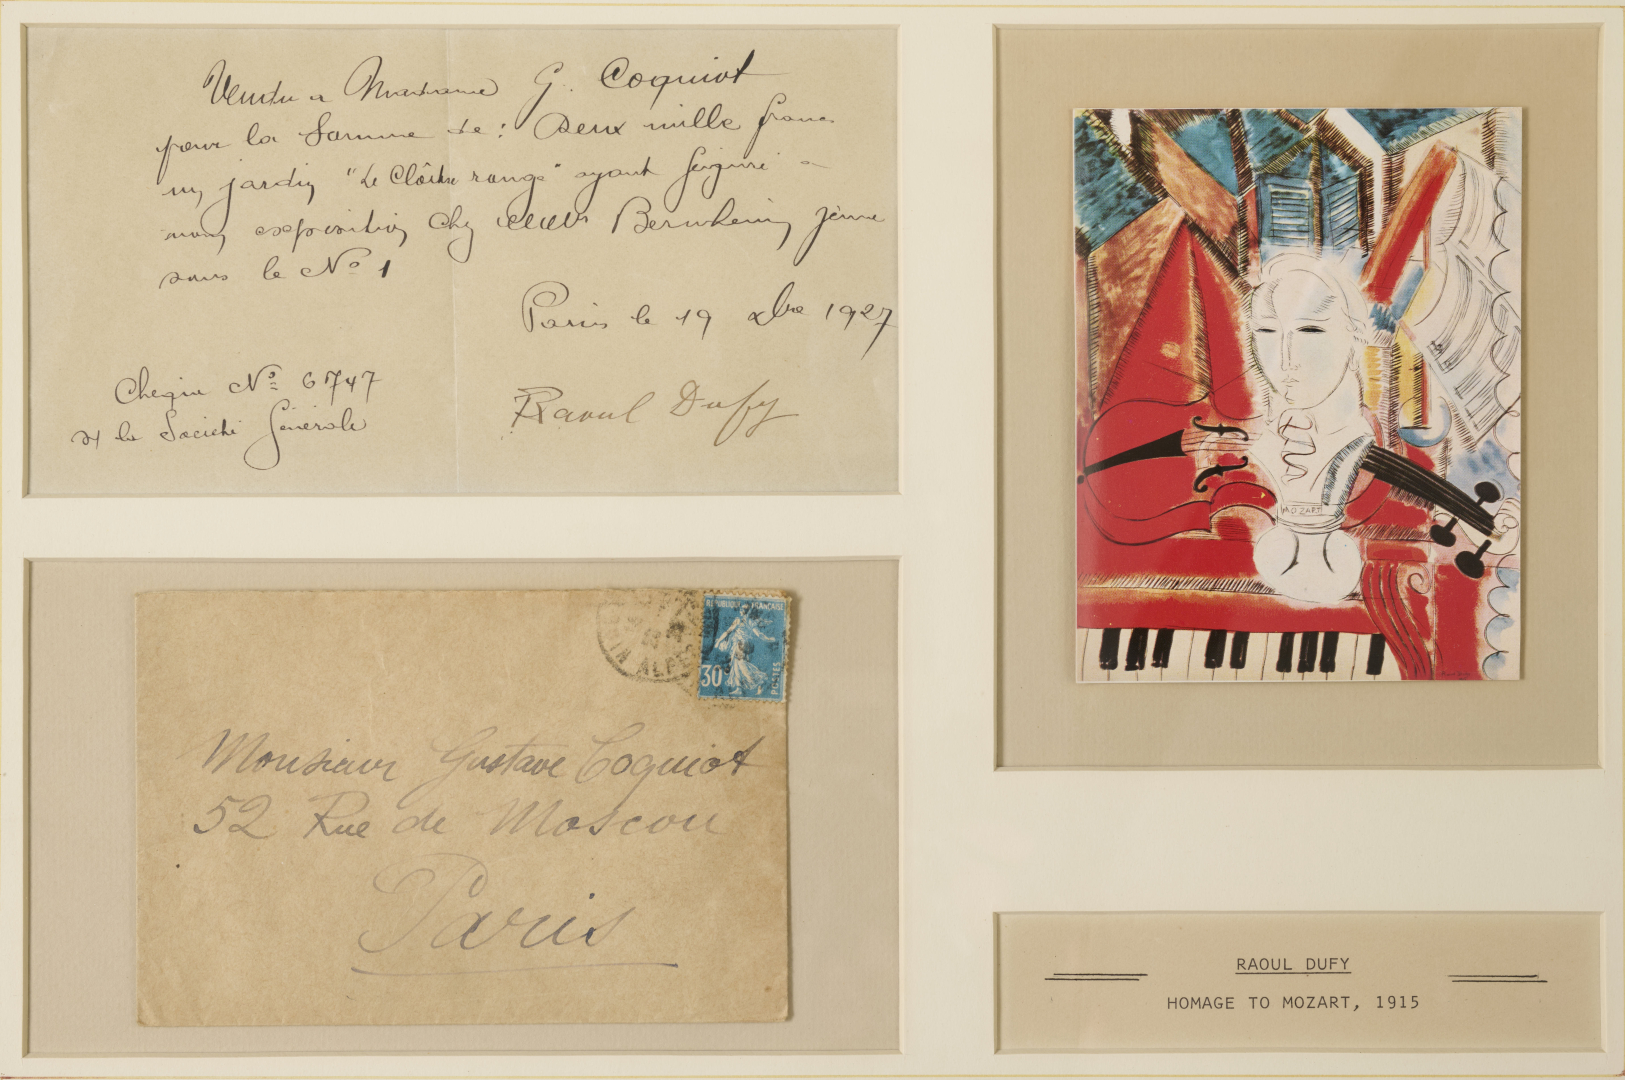 Vendu à Madame G. Coquiot
pour la Somme de : Deux mille francs
un jardin "Le Cloître rouge" ayant figuré à
mon exposition chez MM Bernheim jeune
sous le No 1
Paris le 19 xbre 1927
Chèque No 6747
de la Société Générale
Raoul Dufy
REPUBLIQUE FRANÇAISE
30
POSTES
IN ALPES
Monsieur Gustave Coquiot
52 Rue de Moscou
Paris
MOZART
RAOUL DUFY
HOMAGE TO MOZART, 1915